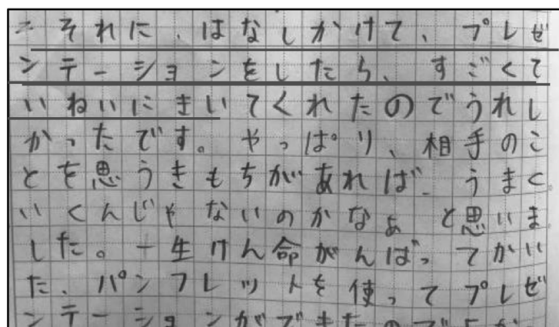 それに、はなしかけて、プレゼ
ンテーションをしたら、すごくて
いねいにきいてくれたのでうれし
かったです。やっぱり、相手のこ
とを思うきもちがあれば、うまく
いくんじゃないのかなぁと思いま
した。一生けん命がんばってかい
た、パンフレットを使ってプレゼ
ンテーションができたので